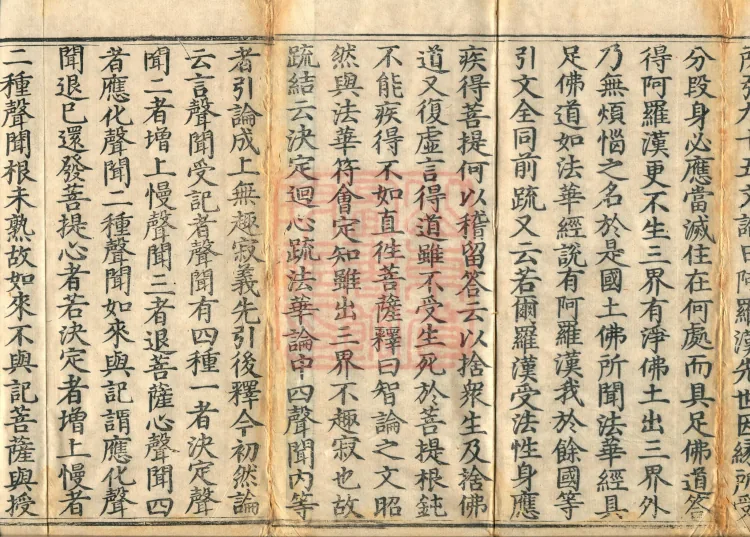 九十五文論曰阿羅漢先世因緣所受
分段身必應當滅住在何處而具足佛道答
得阿羅漢更不生三界有淨佛土出三界外
乃無煩惱之名於是國土佛所聞法華經具
足佛道如法華經說有阿羅漢我於餘國等
引文全同前疏又云若爾羅漢受法性身應
疾得菩提何以稽留答云以捨衆生及捨佛
道又復虛言得道雖不受生死於菩提根鈍
不能疾得不如直徃菩薩釋曰智論之文昭
然與法華符會定知雖出三界不趣寂也故
疏結云決定迴心疏法華論中四聲聞內等
者引論成上無趣寂義先引後釋今初然論
云言聲聞受記者聲聞有四種一者決定聲
聞二者增上慢聲聞三者退菩薩心聲聞四
者應化聲聞二種聲聞如來與記謂應化聲
聞退已還發菩提心者若決定者增上慢者
二種聲聞根未熟故如來不與記菩薩與授